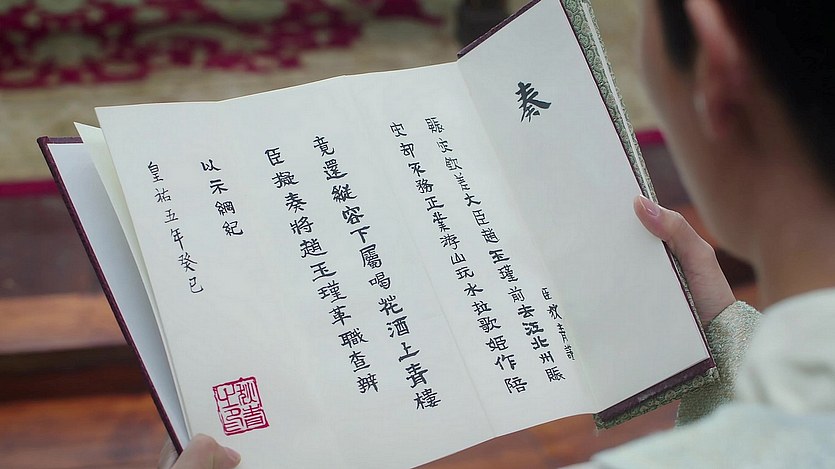 奏
臣狄青謹
賑灾欽差大臣趙玉瑾前去江北州賑
灾却不務正業游山玩水拉歌姬作陪
竟還縱容下屬喝花酒上青樓
臣擬奏將趙玉瑾革職查辨
以示綱紀
皇祐五年癸巳
狄青之印